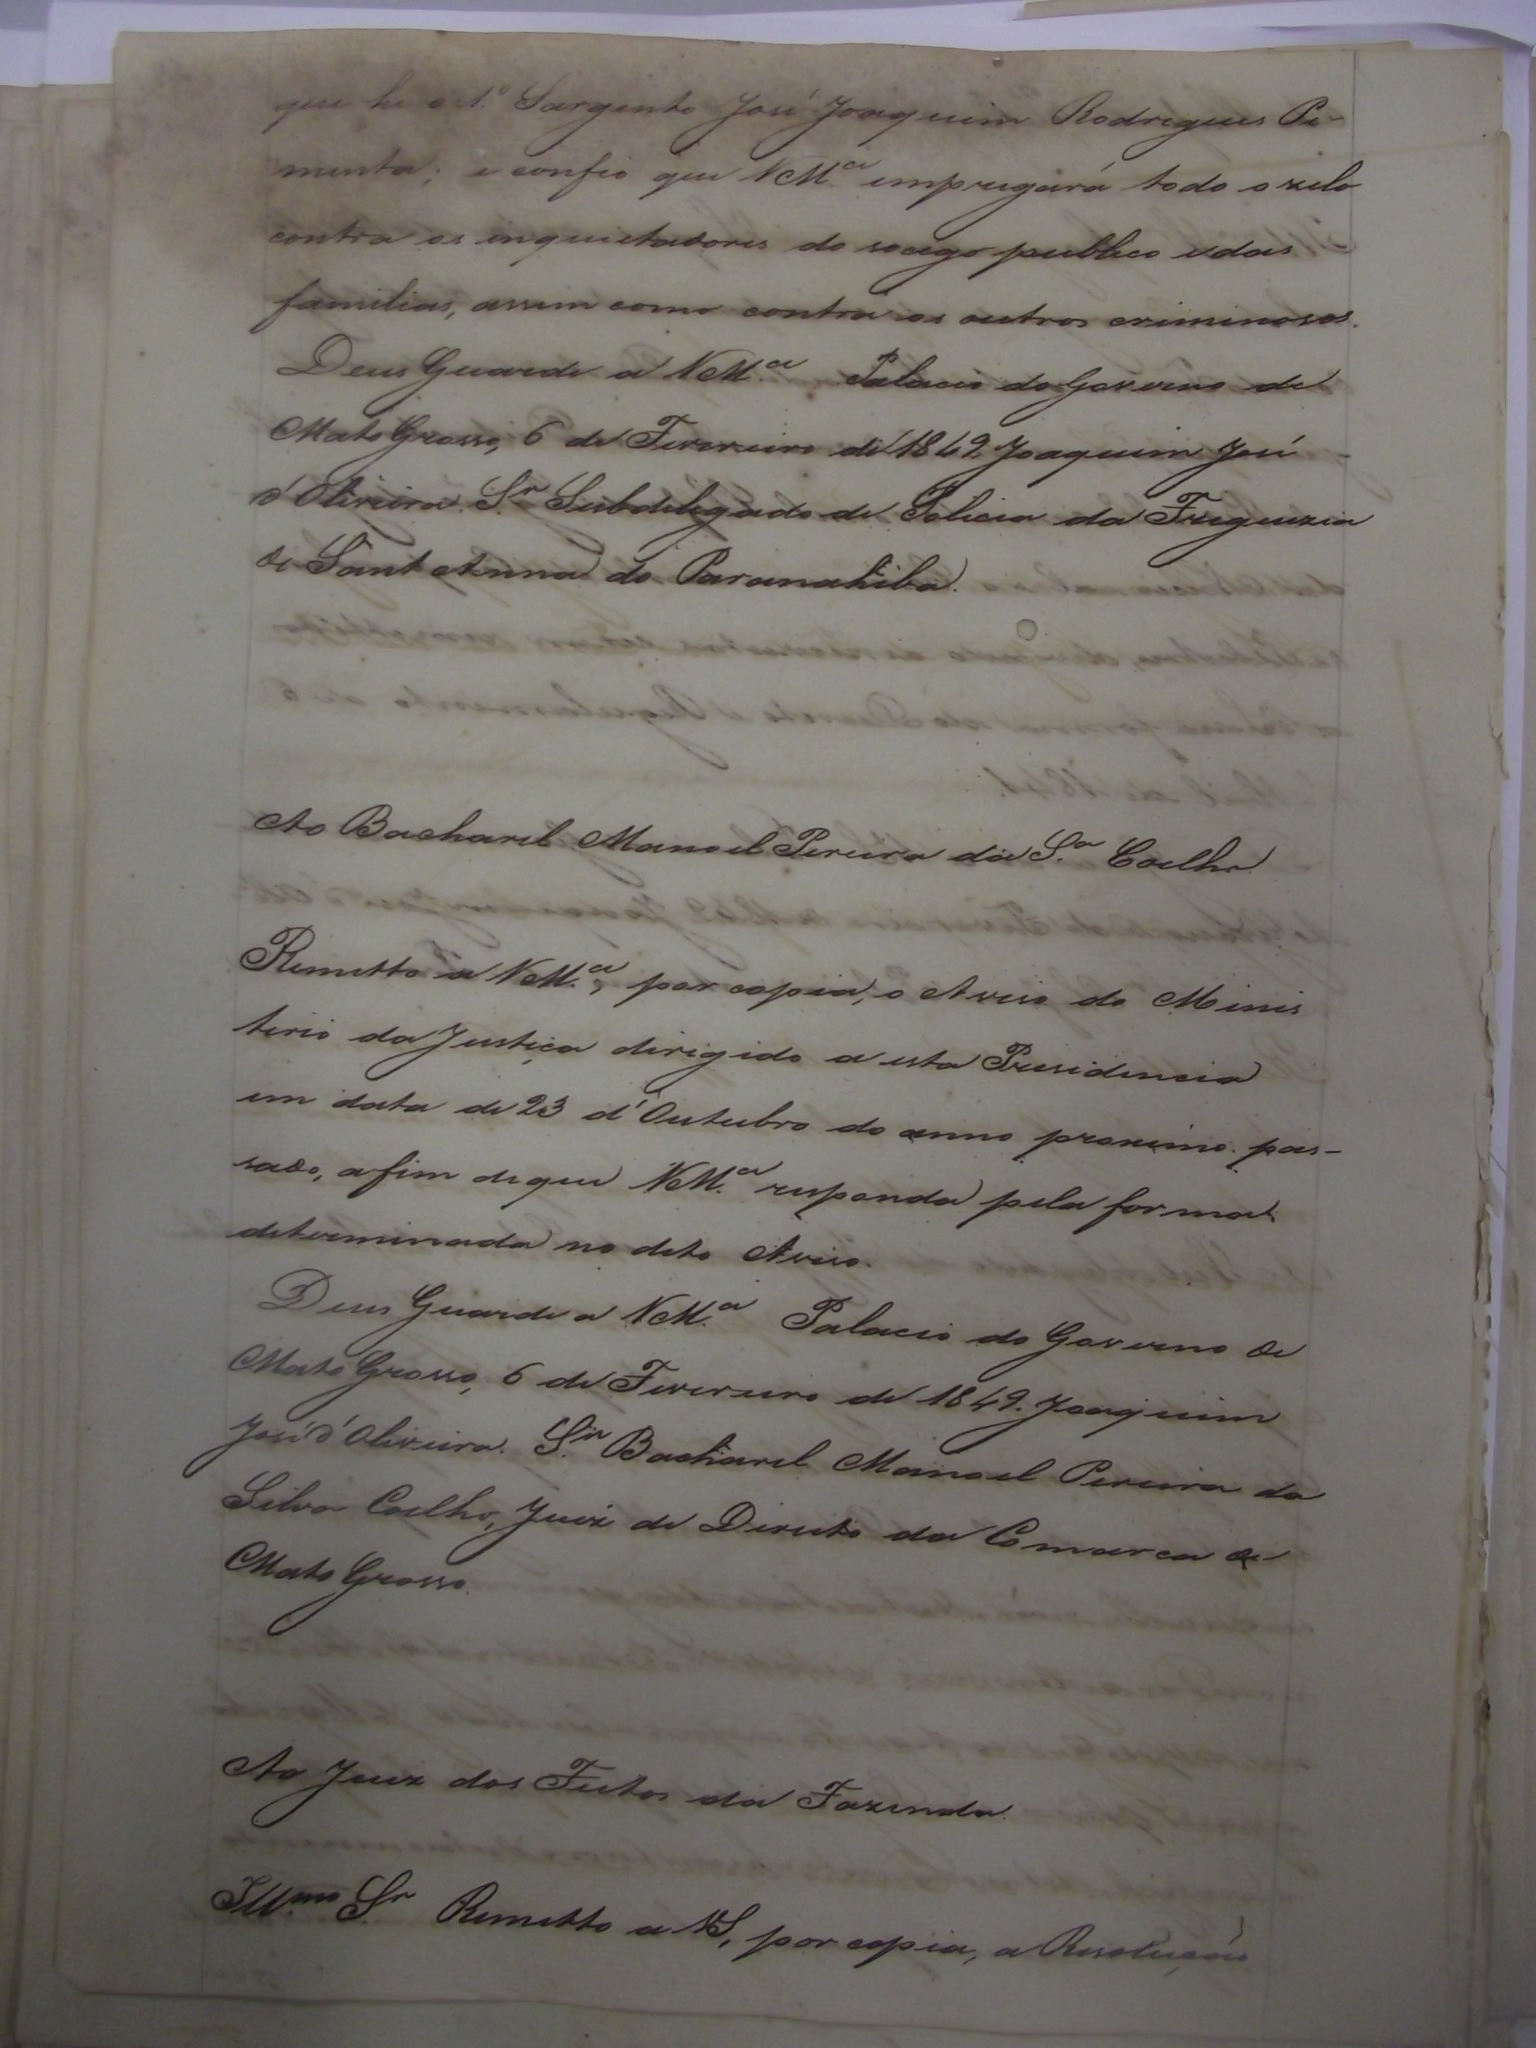 que he o 1.º Sargento José Joaquim Rodrigues Pi-
menta; e confio que VM.ce empregará todo o zelo
contra os inquietadores do socego publico e das
familias, assim como contra os outros criminosos.
Deus Guarde a VM.ce Palacio do Governo de
Mato Grosso, 6 de Fevereiro de 1849. Joaquim José
d'Oliveira. Sr. Subdelegado de Policia da Freguezia
de Sant Anna do Paranahiba.
Ao Bacharel Manoel Pereira da S.a Coelho.
Remetto a VM.ce, por copia, o Aviso do Minis
terio da Justiça dirigido a esta Presidencia
em data de 23 d'Outubro do anno proximo pas-
sado, a fim de que VM.ce responda pela forma
determinada no dito Aviso.
Deus Guarde a VM.ce Palacio do Governo de
Mato Grosso, 6 de Fevereiro de 1849. Joaquim
José d'Oliveira. Sr. Bacharel Manoel Pereira da
Silva Coelho, Juiz de Direito da Comarca de
Mato Grosso.
Ao Juiz dos Feitos da Fazenda.
Ill.mo Sr. Remetto a VS, por copia, a Resolução